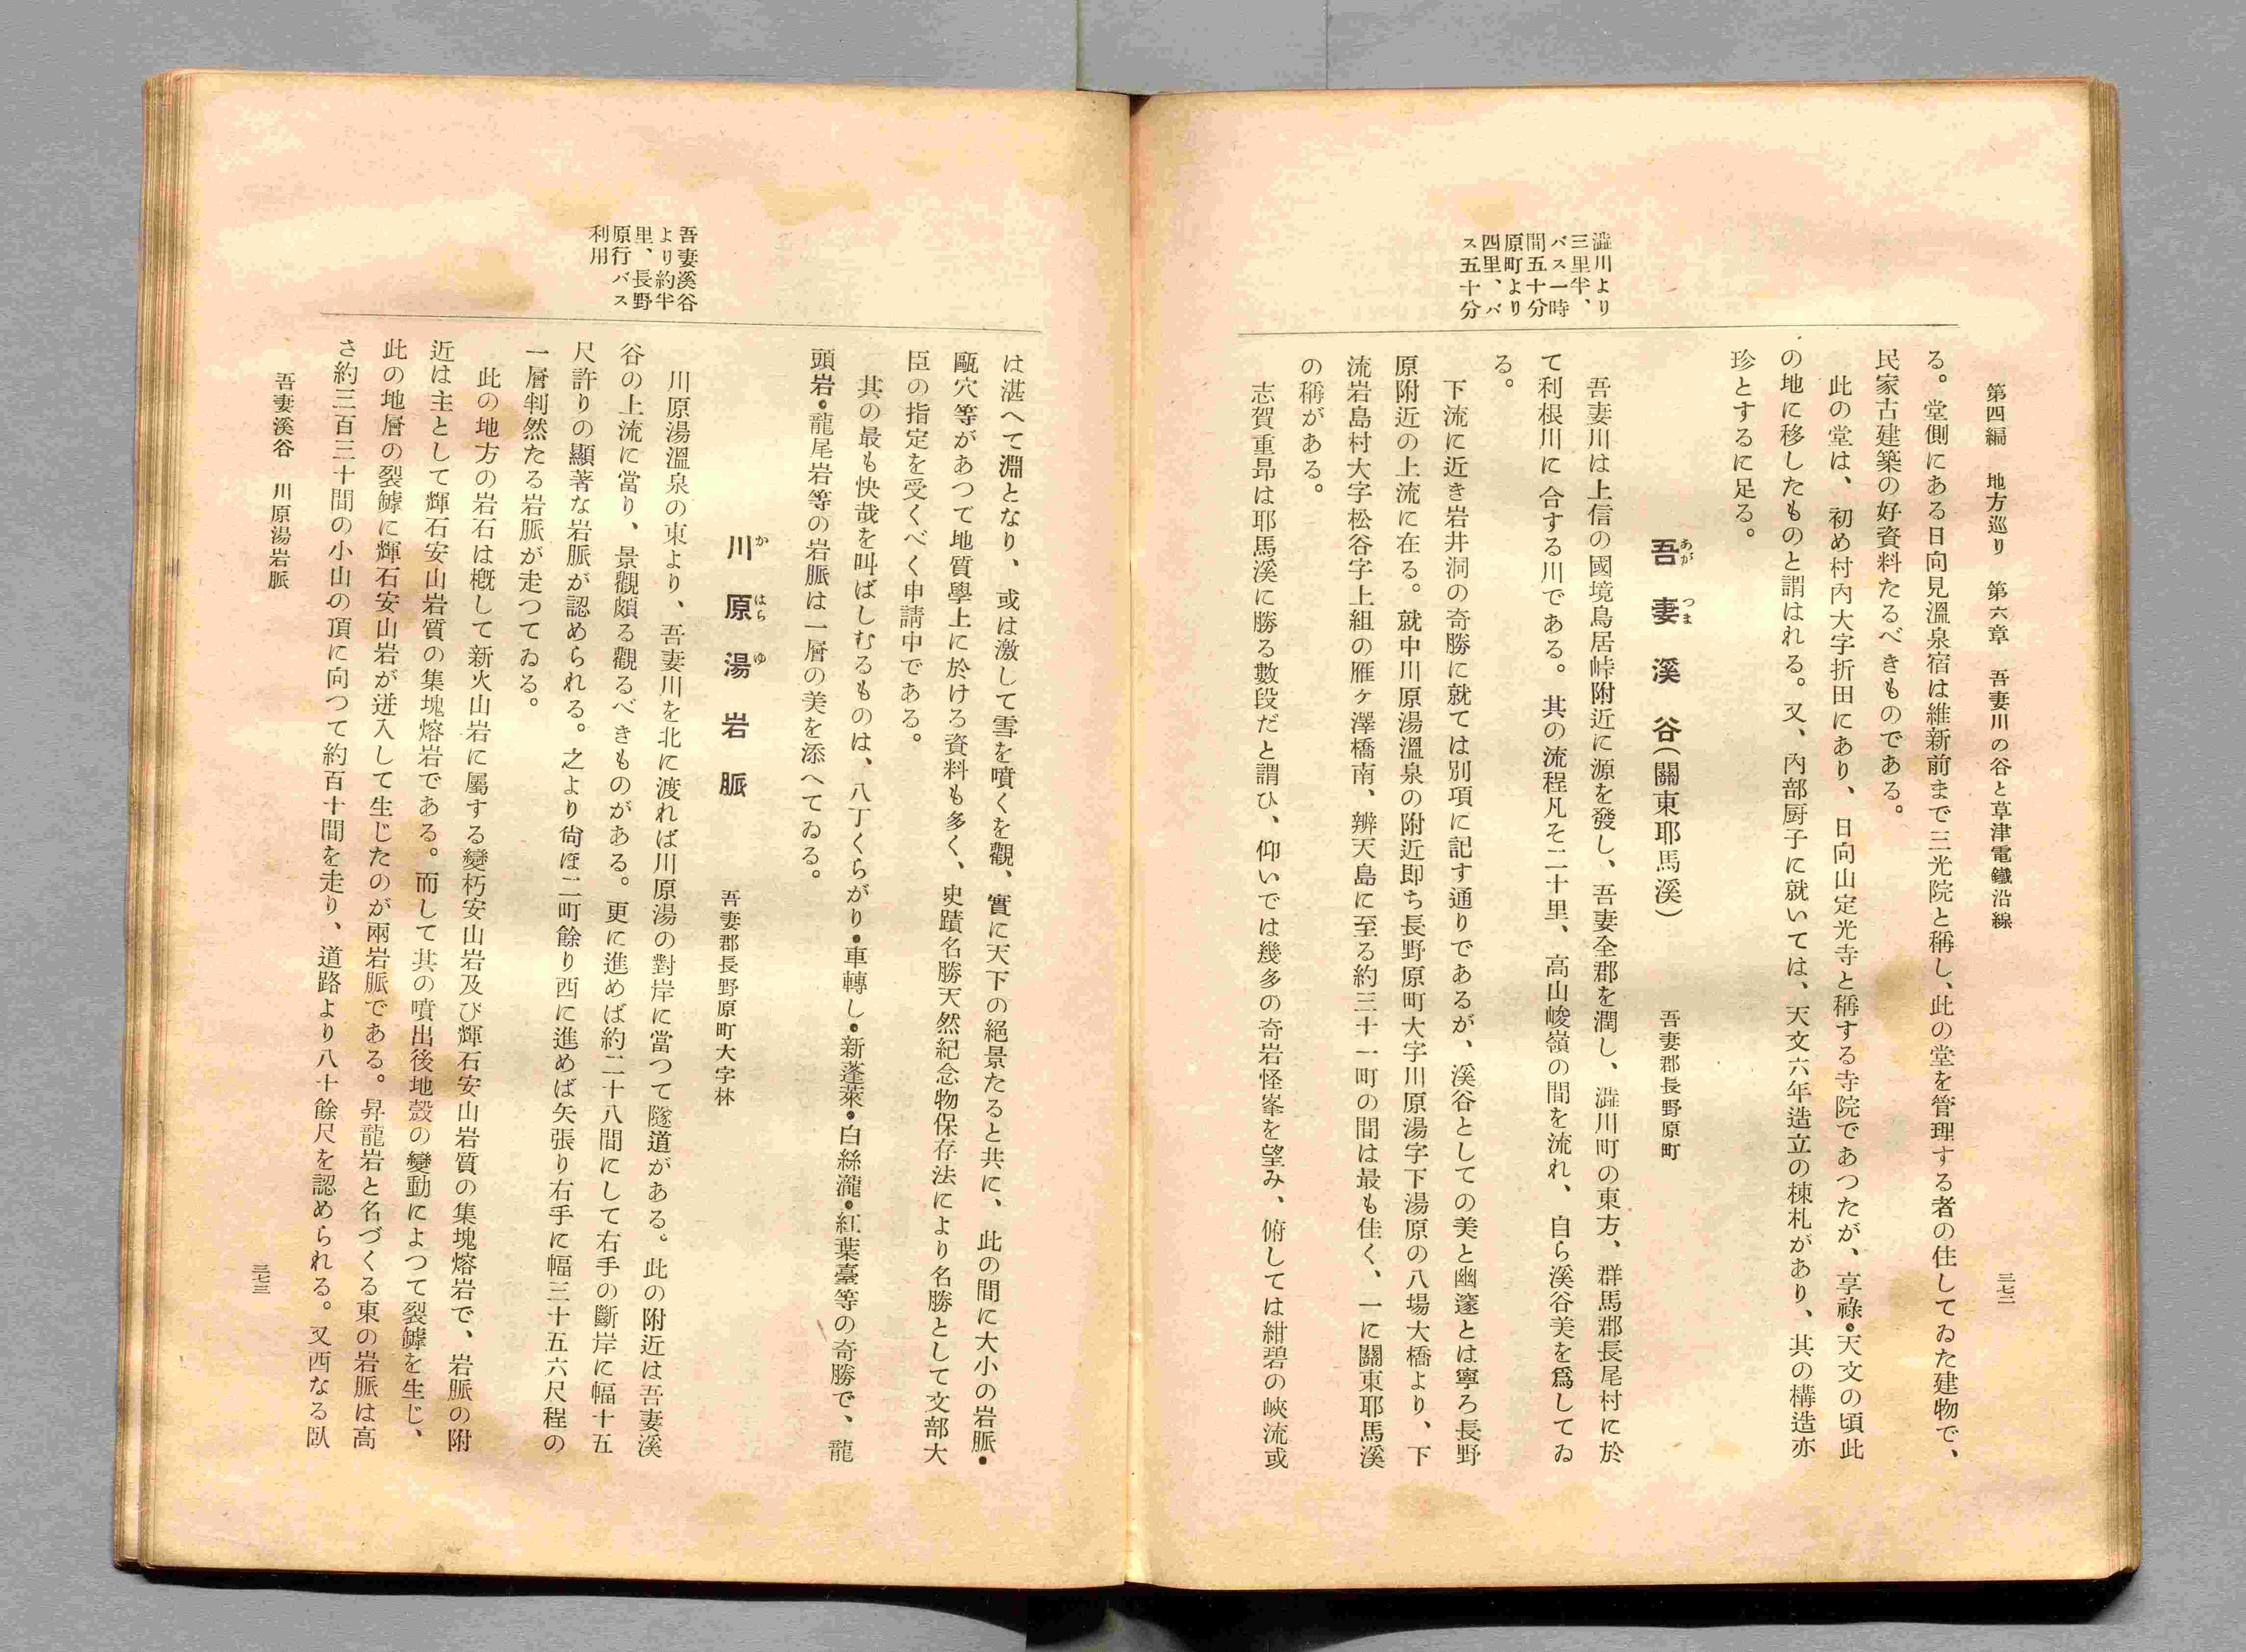 第四編　地方巡り　第六章　吾妻川の谷と草津電鐵沿線
三七二
る。堂側にある日向見溫泉宿は維新前まで三光院と稱し、此の堂を管理する者の住してゐた建物で、
民家古建築の好資料たるべきものである。
此の堂は、初め村內大字折田にあり、日向山定光寺と稱する寺院であつたが、享祿・天文の頃此
の地に移したものと謂はれる。又、內部厨子に就いては、天文六年造立の棟札があり、其の構造亦
珍とするに足る。
吾妻溪谷（關東耶馬溪）　吾妻郡長野原町
あがつま
澁川より
三里半、
バス一時
間五十分
原町より
四里、バ
ス五十分
吾妻川は上信の國境鳥居峠附近に源を發し、吾妻全郡を潤し、澁川町の東方、群馬郡長尾村に於
て利根川に合する川である。其の流程凡そ二十里、高山峻嶺の間を流れ、自ら溪谷美を爲してゐ
る。
下流に近き岩井洞の奇勝に就ては別項に記す通りであるが、溪谷としての美と幽邃とは寧ろ長野
原附近の上流に在る。就中川原湯溫泉の附近卽ち長野原町大字川原湯字下湯原の八場大橋より、下
流岩島村大字松谷字上組の雁ヶ澤橋南、辨天島に至る約三十一町の間は最も佳く、一に關東耶馬溪
の稱がある。
志賀重昂は耶馬溪に勝る數段だと謂ひ、仰いでは幾多の奇岩怪峯を望み、俯しては紺碧の峽流或
は湛へて淵となり、或は激して雪を噴くを觀、實に天下の絕景たると共に、此の間に大小の岩脈・
甌穴等があつて地質學上に於ける資料も多く、史蹟名勝天然紀念物保存法により名勝として文部大
臣の指定を受くべく申請中である。
其の最も快哉を叫ばしむるものは、八丁くらがり・車轉し・新蓬萊・白絲瀧・紅葉臺等の奇勝で、龍
頭岩・龍尾岩等の岩脈は一層の美を添へてゐる。
川原湯岩脈　吾妻郡長野原町大字林
かはらゆ
吾妻溪谷
より約半
里、長野
原行バス
利用
川原湯溫泉の東より、吾妻川を北に渡れば川原湯の對岸に當つて隧道がある。此の附近は吾妻溪
谷の上流に當り、景觀頗る觀るべきものがある。更に進めば約二十八間にして右手の斷岸に幅十五
尺許りの顯著な岩脈が認められる。之より尙ほ二町餘り西に進めば矢張り右手に幅三十五六尺程の
一層判然たる岩脈が走つてゐる。
此の地方の岩石は槪して新火山岩に屬する變朽安山岩及び輝石安山岩質の集塊熔岩で、岩脈の附
近は主として輝石安山岩質の集塊熔岩である。而して其の噴出後地殼の變動によつて裂罅を生じ、
此の地層の裂罅に輝石安山岩が迸入して生じたのが兩岩脈である。昇龍岩と名づくる東の岩脈は高
さ約三百三十間の小山の頂に向つて約百十間を走り、道路より八十餘尺を認められる。又西なる臥
吾妻溪谷　川原湯岩脈
三七三